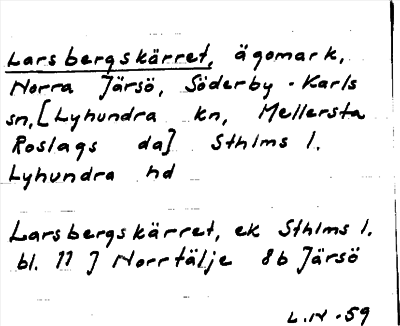 Larsbergskärret, ägomark,
Norra Järsö, Söderby-Karls
sn, [Lyhundra kn, Mellersta
Roslags da] Sthlms l.
Lyhundra hd
Larsbergskärret, ek Sthlms l.
bl. 11 J Norrtälje 8b Järsö
L.N-59